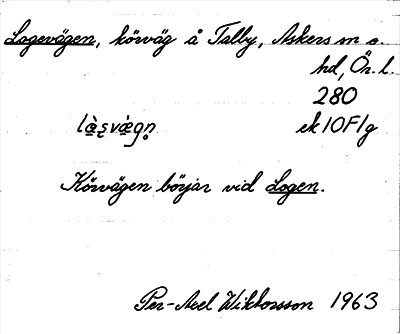 Logevägen, körväg å Talby, Askers sn o.
hd, Ör. l.
280
ek 10F1g
Körvägen börjar vid Logen.
Per-Axel Wiktorsson 1963